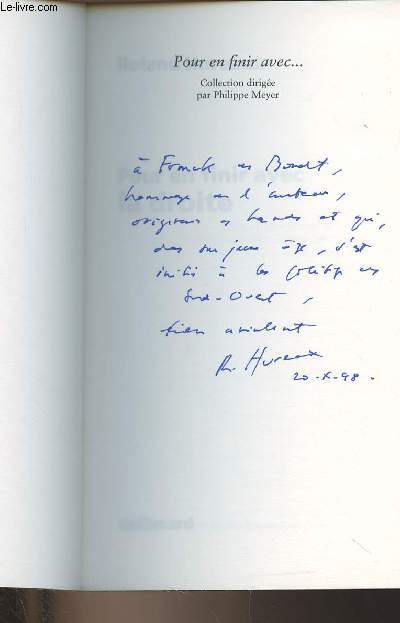 Le-livre.com
Pour en finir avec...
Collection dirigée
par Philippe Meyer
à
hommage de l'auteur,
originaire des Landes et qui,
dans son jeune âge, s'est
initié à la politique en
Sud-Ouest,
bien amicalement
R. Hureaux
20-X-98.
Roland
Pour en finir avec
la droite
Gallimard